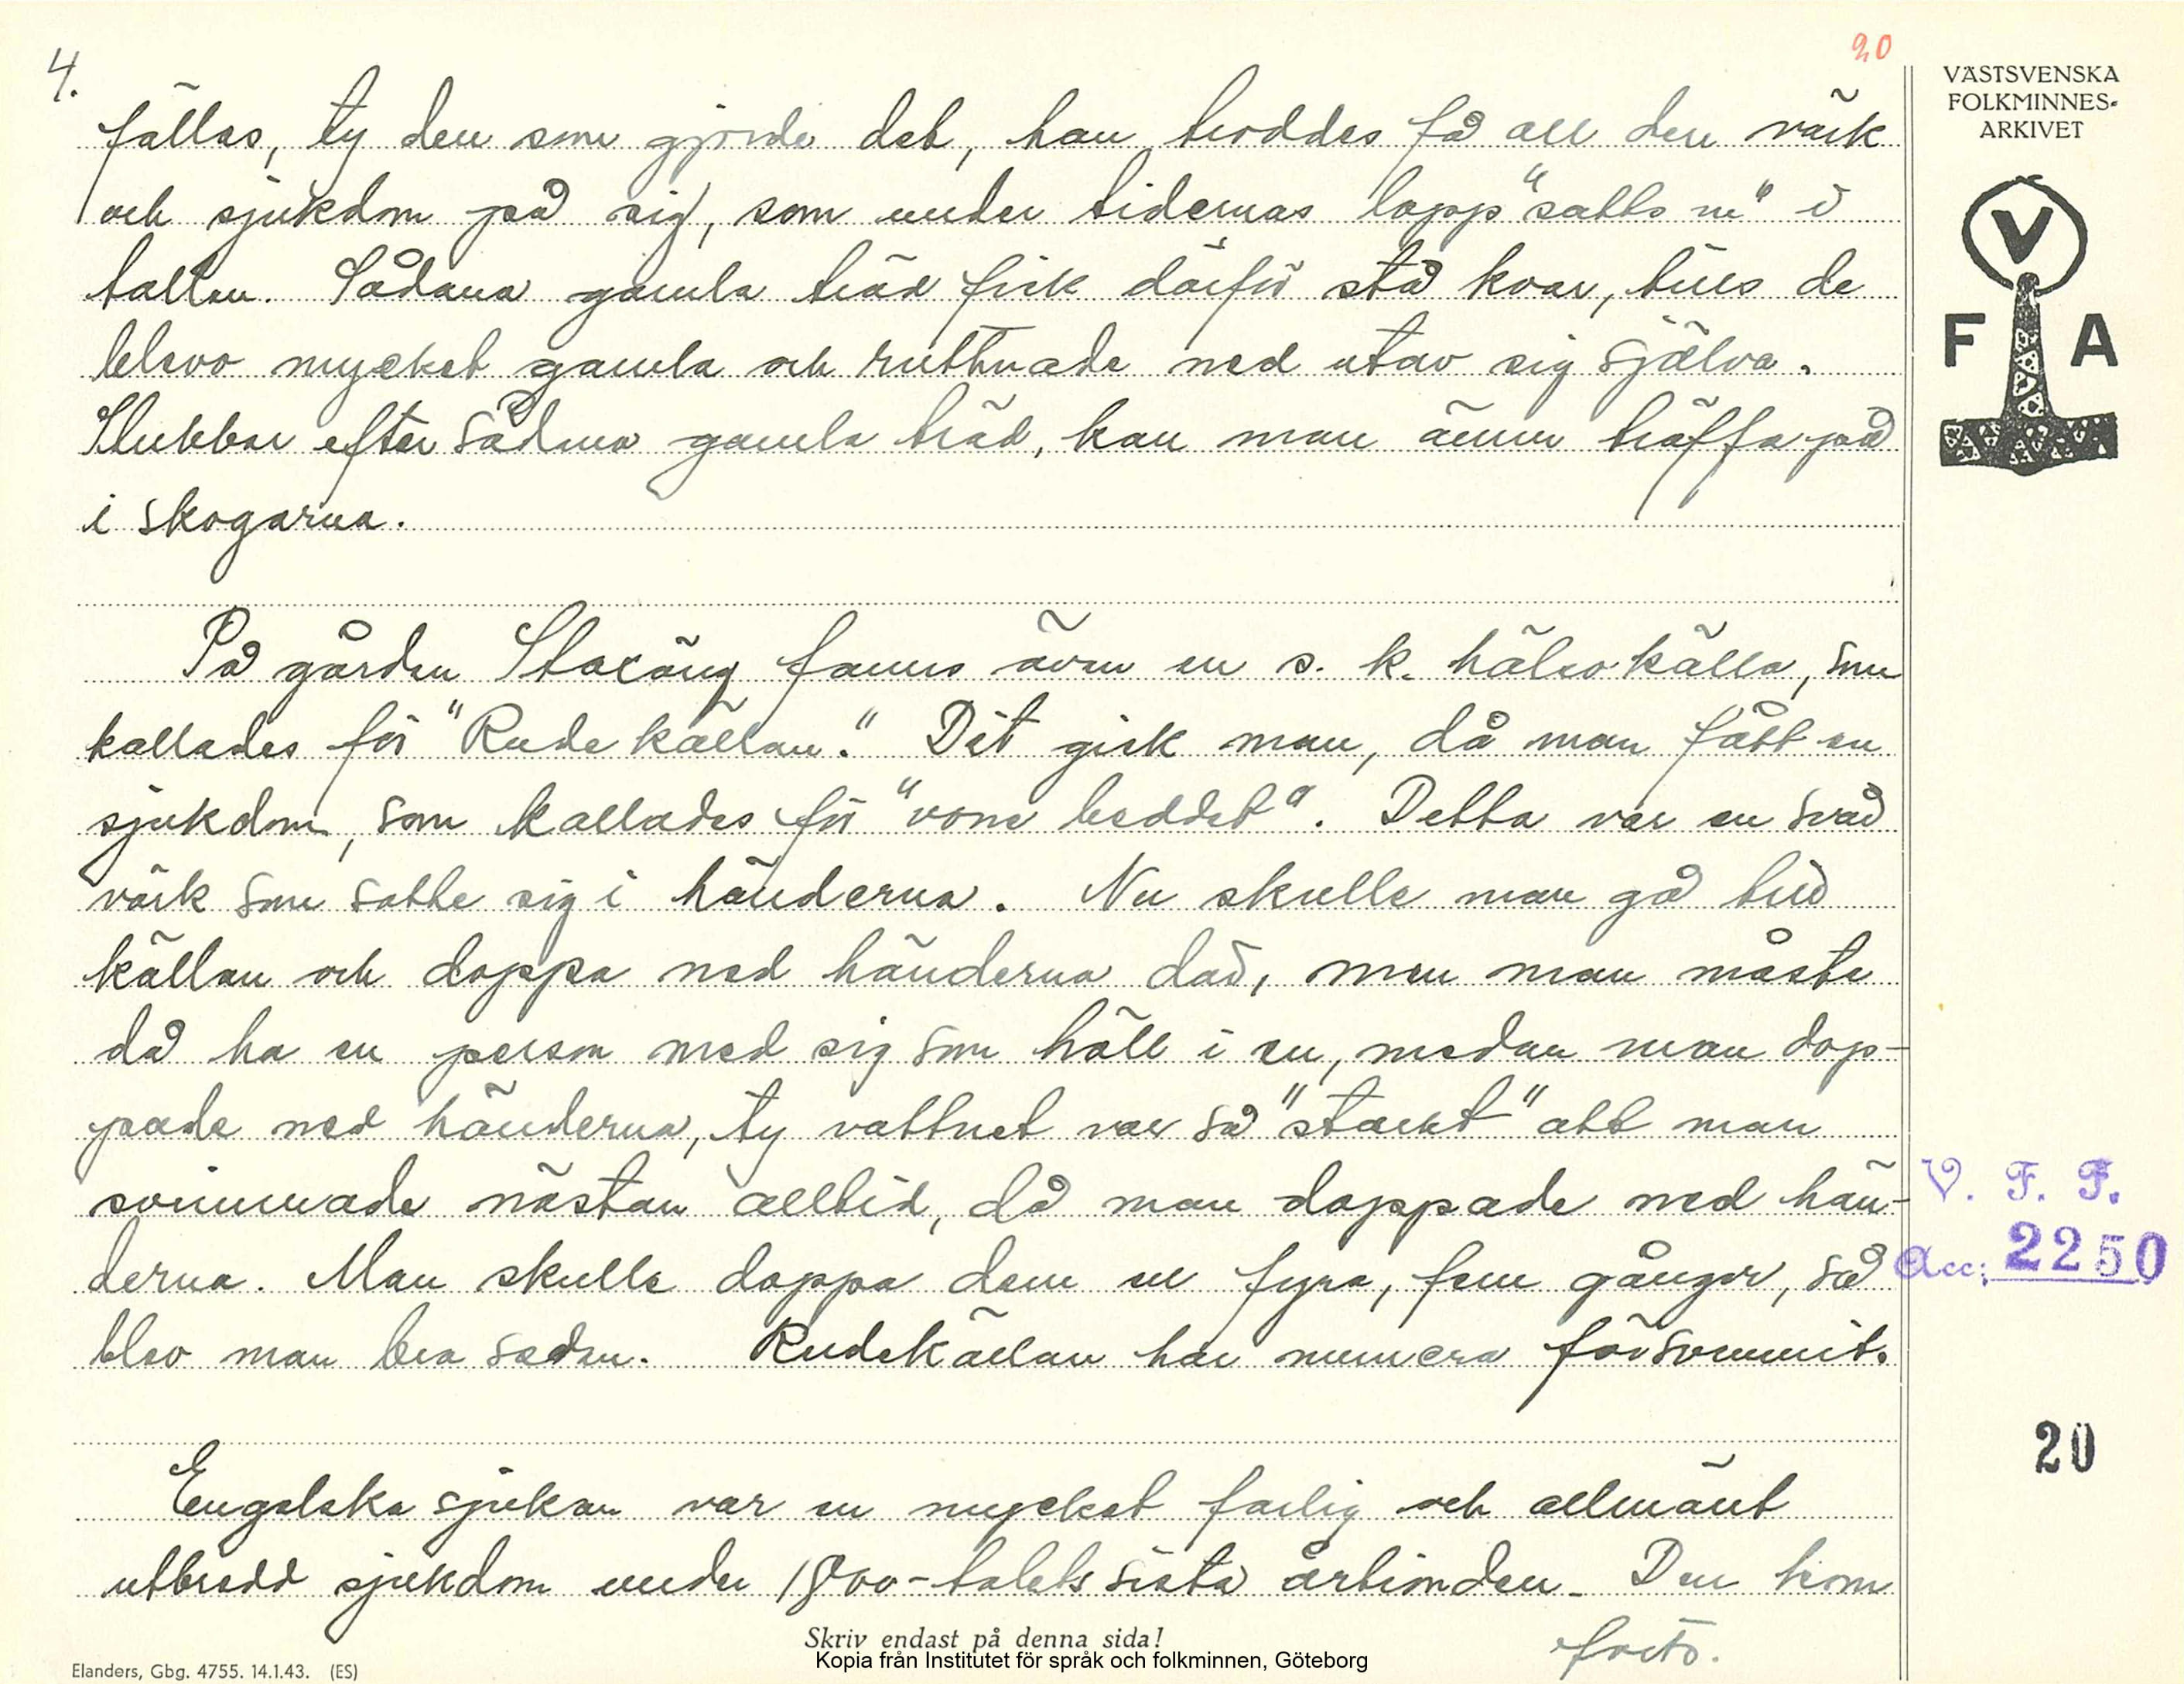 4.
20
fällas, ty den som gjorde det, han troddes få all den värk
och sjukdom på sig, som under tidernas lopp "satts in" i
tallen. Sådana gamla träd fick därför stå kvar, tills de
blevo mycket gamla och ruttnade ned utav sig själva.
Stubbar efter sådana gamla träd, kan man ännu träffa på
i skogarna.
På gården Stoxäng fanns även en s. k. hälsokälla, som
kallades för "Rudekällan." Dit gick man, då man fått en
sjukdom, som kallades för "vone beddet". Detta var en svår
värk som satte sig i händerna. Nu skulle man gå till
källan och doppa ned händerna där, men man måste
då ha en person med sig som höll i en, medan man dop-
pade ned händerna, ty vattnet var så "starkt" att man
svimmade nästan alltid, då man doppade ned hän-
derna. Man skulle doppa dem en fyra, fem gånger, så
blev man bra sedan. Rudekällan har numera försvunnit.
Engelska sjukan var en mycket farlig och allmänt
utbredd sjukdom under 1800-talets sista årtionden. Den kom
forts.
Skriv endast på denna sida!
Kopia från Institutet för språk och folkminnen, Göteborg
Elanders, Gbg. 4755. 14.1.43. (ES)
VÄSTSVENSKA
FOLKMINNES-
ARKIVET
V
F A
V. F. F.
Acc: 2250
20